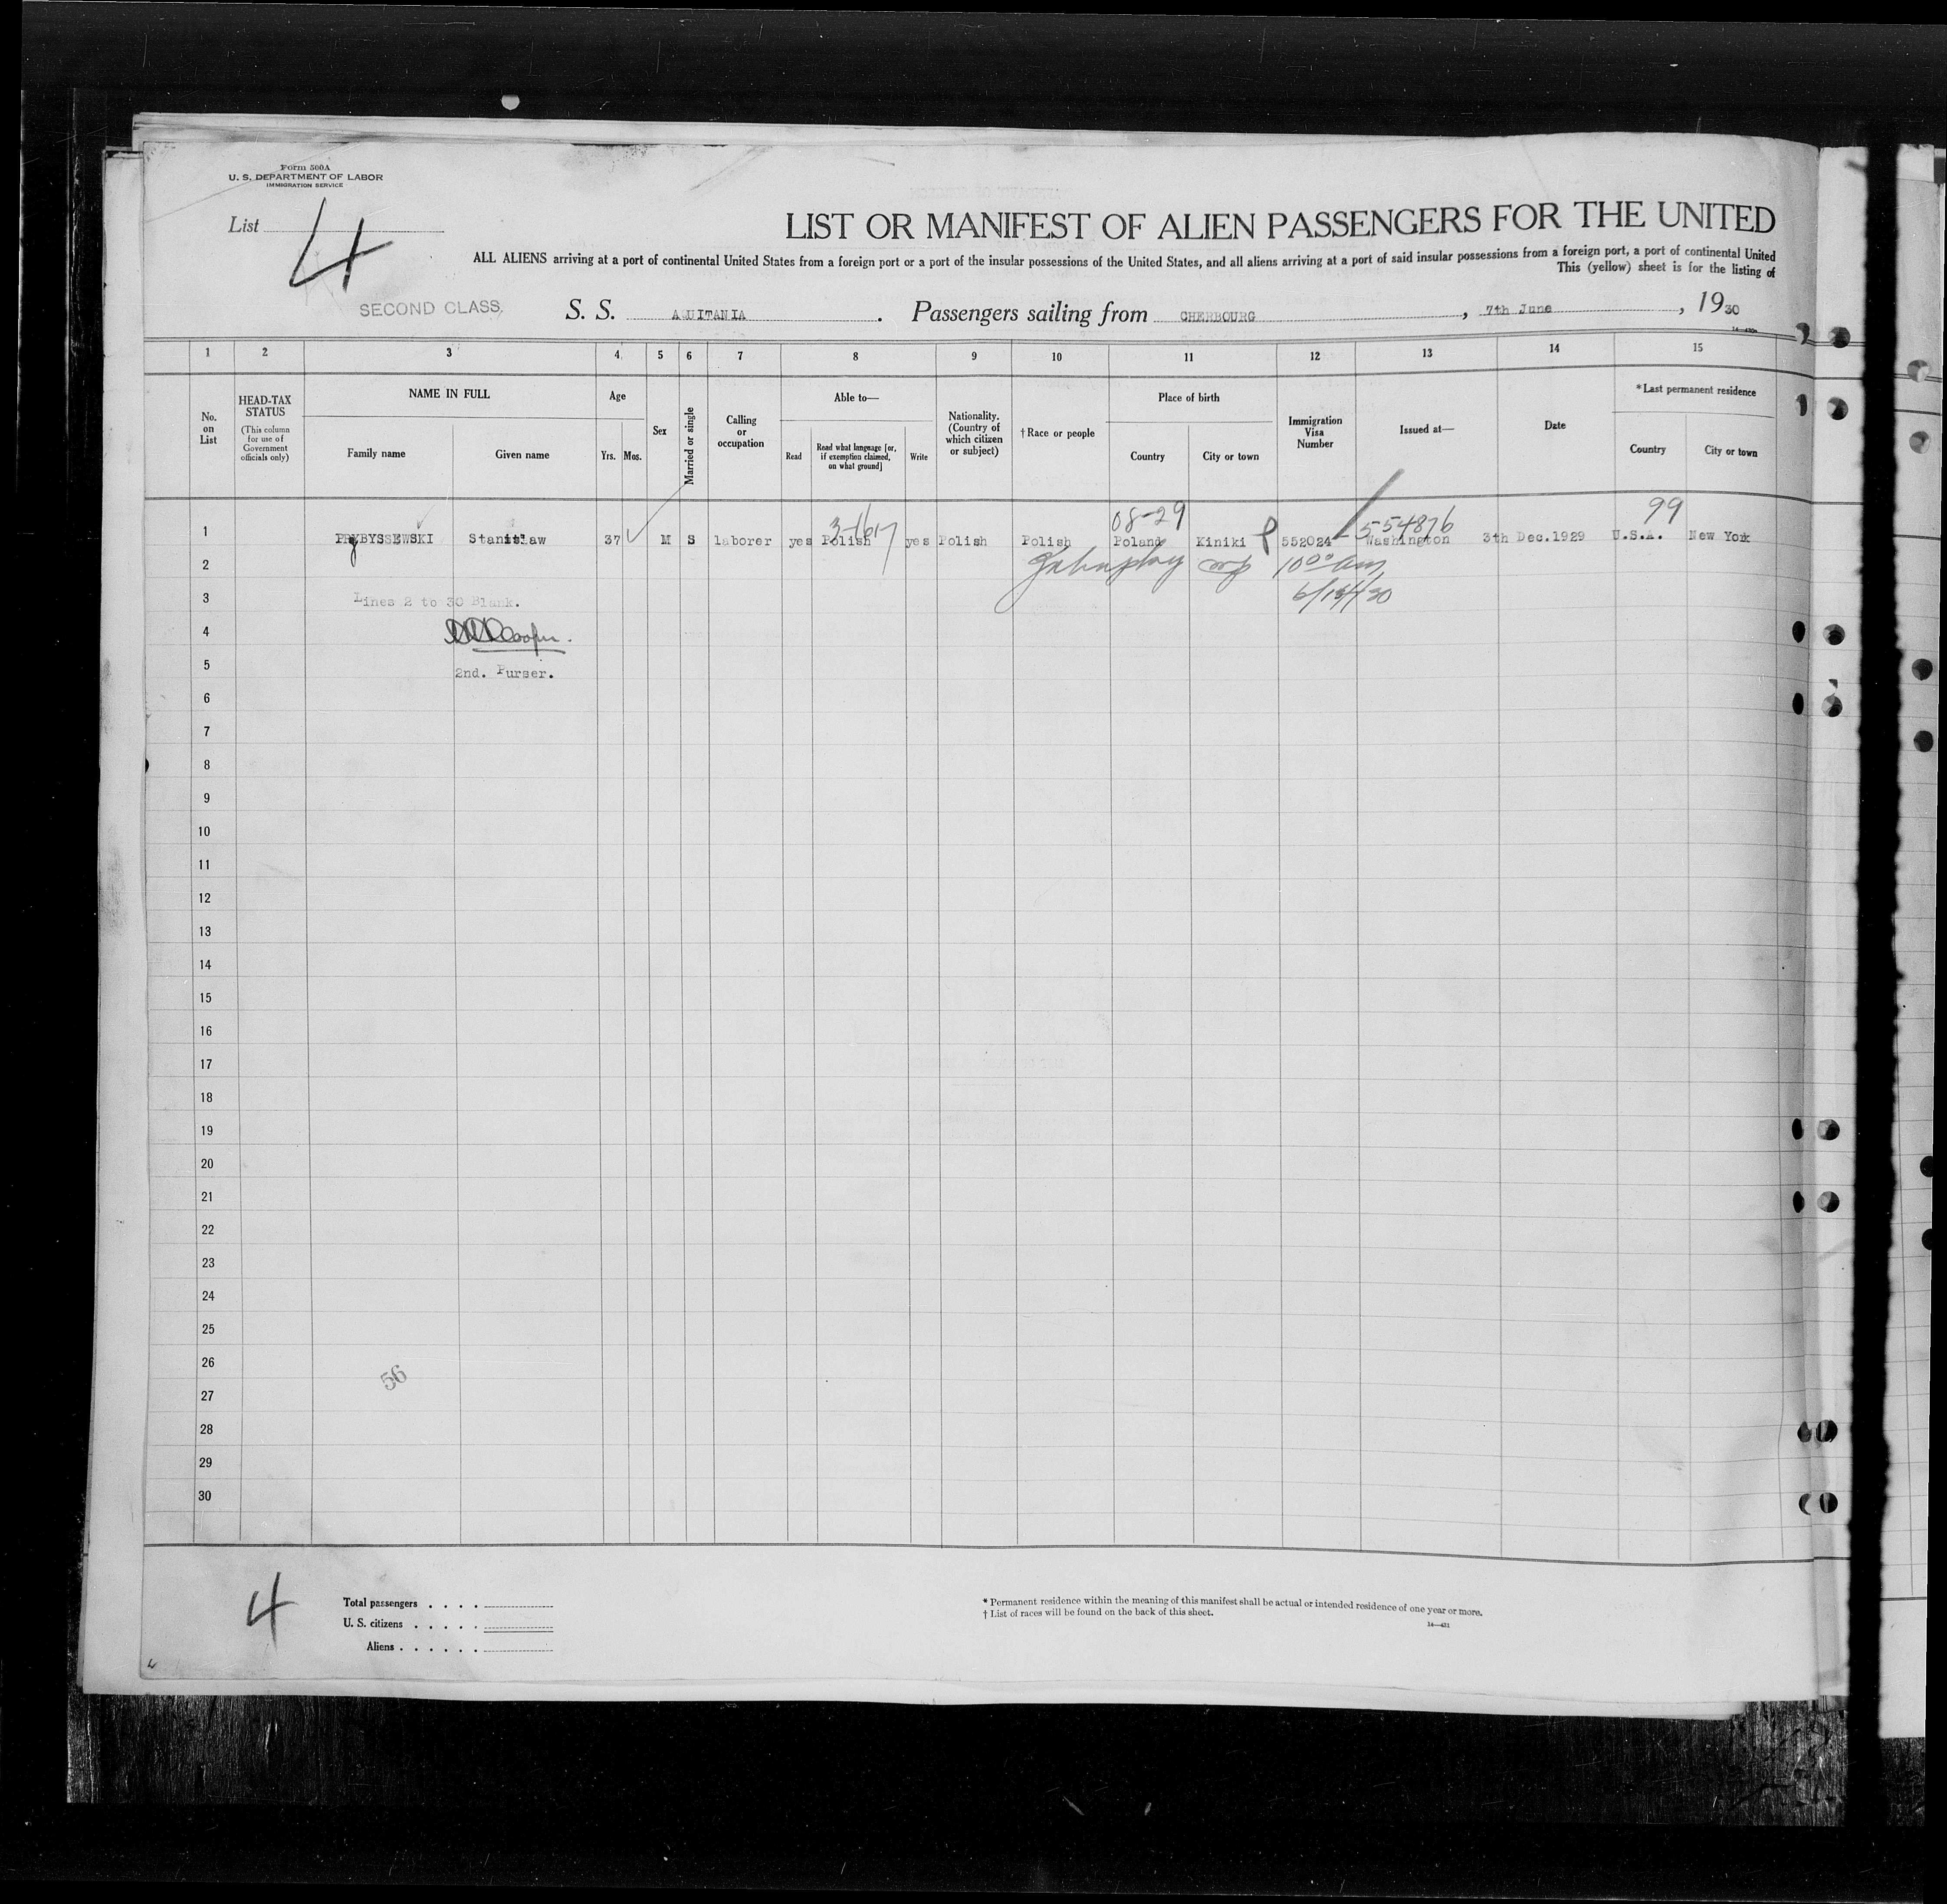 Form 500A
U. S. DEPARTMENT OF LABOR
IMMIGRATION SERVICE
List 4
LIST OR MANIFEST OF ALIEN PASSENGERS FOR THE UNITED
ALL ALIENS arriving at a port of continental United States from a foreign port or a port of the insular possessions of the United States, and all aliens arriving at a port of said insular possessions from a foreign port, a port of continental United
This (yellow) sheet is for the listing of
SECOND CLASS S. S. AQUITANIA . Passengers sailing from CHERBOURG , 7th June , 1930
1 2 3 4 5 6 7 8 9 10 11 12 13 14 15
No. on List
HEAD-TAX STATUS
(This column for use of Government officials only)
NAME IN FULL
Family name Given name
Age
Yrs. Mos.
Sex
Married or single
Calling or occupation
Able to—
Read Read what language [or, if exemption claimed, on what ground] Write
Nationality. (Country of which citizen or subject)
† Race or people
Place of birth
Country City or town
Immigration Visa Number
Issued at—
Date
* Last permanent residence
Country City or town
3-1617 08-29 554876 99
1 PRZYBYSSEWSKI Stanislaw 37 M S laborer yes Polish yes Polish Polish Poland Kiniki 552024 Washington 3th Dec.1929 U.S.A. New York
2 10 00 am
3 Lines 2 to 30 Blank.
4 Cooper.
5 2nd. Purser.
6
7
8
9
10
11
12
13
14
15
16
17
18
19
20
21
22
23
24
25
26
56
27
28
29
30
4
Total passengers . . . .
U. S. citizens . . . . .
Aliens . . . . . .
* Permanent residence within the meaning of this manifest shall be actual or intended residence of one year or more.
† List of races will be found on the back of this sheet.
14—421